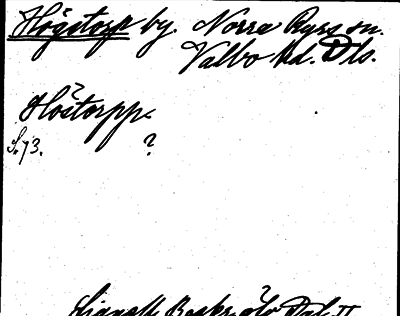 Högstorp by. Norra Ryrs sn.
Valbo hd. Dls.
Höstorpp
S. 73. ?
Lignell Beskr. öfv. Dal. II